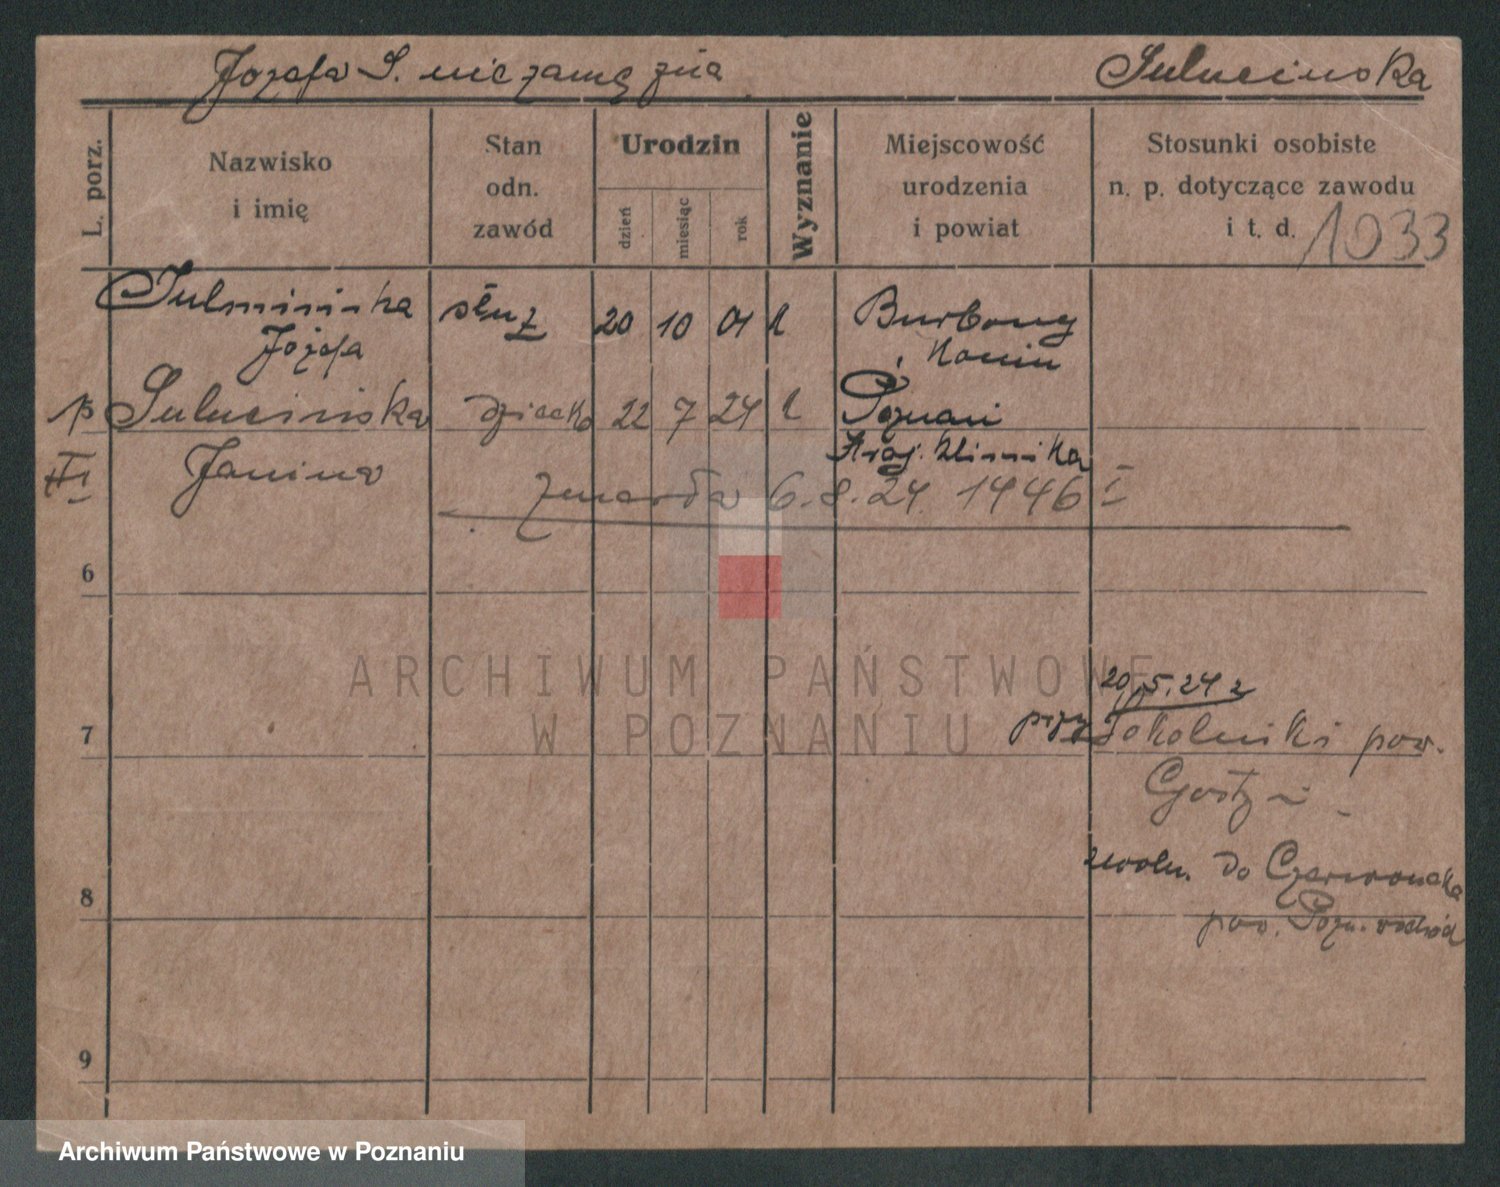 Józefa S. niezamężna
L. porz.
Nazwisko
i imię
Stan
odn.
zawód
Urodzin
dzień
miesiąc
rok
Wyznanie
Miejscowość
urodzenia
i powiat
Stosunki osobiste
n. p. dotyczące zawodu
i t. d. 1033
służ 20 10 01
Józefa
Konin
dziecko 22 7 24 Poznań
Janina
Kraj. Klinika
zmarła 6.8.24 1446 I
6
ARCHIWUM PAŃSTWOWE
W POZNANIU
20.5.24 z
7
przy Sokolniki pow.
Gostyń
do Czerwonaka
8
pow. Pozn. wschód
9
Archiwum Państwowe w Poznaniu